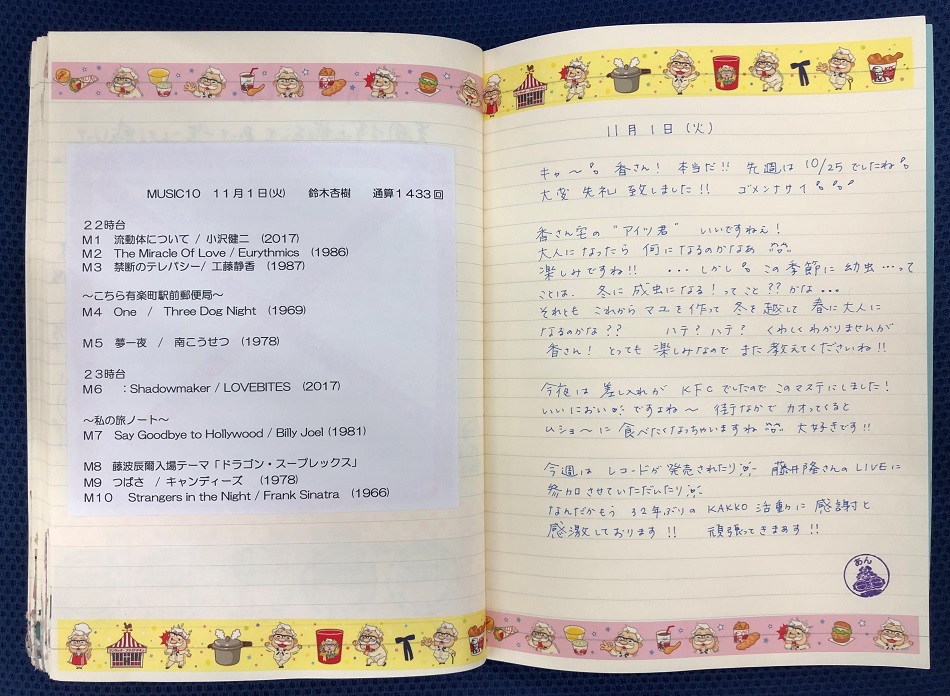 MUSIC10 11月1日(火) 鈴木杏樹 通算1433回
22時台
M1 流動体について / 小沢健二 (2017)
M2 The Miracle Of Love / Eurythmics (1986)
M3 禁断のテレパシー/ 工藤静香 (1987)
〜こちら有楽町駅前郵便局〜
M4 One / Three Dog Night (1969)
M5 夢一夜 / 南こうせつ (1978)
23時台
M6 :Shadowmaker / LOVEBITES (2017)
〜私の旅ノート〜
M7 Say Goodbye to Hollywood / Billy Joel (1981)
M8 藤波辰爾入場テーマ「ドラゴン・スープレックス」
M9 つばさ / キャンディーズ (1978)
M10 Strangers in the Night / Frank Sinatra (1966)
11月1日(火)
キャ〜 香さん! 本当だ!! 先週は 10/25 でしたね
大変 失礼 致しました!! ゴメンナサイ
香さん宅の "アイツ君" いいですねぇ!
大人になったら 何になるのかなぁ
楽しみですね!! ・・・しかし この季節に 幼虫・・・って
ことは、 冬に 成虫になる!ってこと??かな・・・
それとも これから マユを作って 冬を越して 春に大人に
なるのかな?? ハテ?ハテ? くわしくわかりませんが
香さん! とっても 楽しみなので また 教えてくださいね!!
今夜は 差し入れが KFCでしたので このマステにしました!
いいにおい ですよね〜 街なかで カオってくると
ムショ〜に 食べたくなっちゃいますね 大好きです!!
今週は レコードが 発売されたり 藤井隆さんの LIVEに
参加させていただいたり
なんだかもう 32年ぶりの KAKKO 活動に 感謝と
感激しております!! 頑張ってきまぁす!!
あん